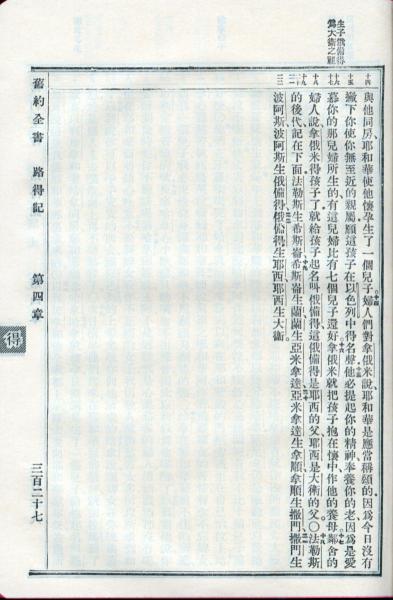 生子俄備得
爲大衛之祖
十四
十五
十六
十七
十八
十九
與他同房、耶和華使他懷孕生了一個兒子、婦人們對拿俄米說、耶和華是應當稱頌的、因爲今日沒有
撇下你使你無至近的親屬、願這孩子在以色列中得名聲、他必提起你的精神、奉養你的老、因爲是愛
慕你的那兒婦所生的、有這兒婦比有七個兒子還好、拿俄米就把孩子抱在懷中作他的養母、鄰舍的
婦人說、拿俄米得孩子了、就給孩子起名叫俄備得、這俄備得是耶西的父、耶西是大衛的父○法勒斯
的後代記在下面、法勒斯生希斯崙、希斯崙生蘭、蘭生亞米拿達、亞米拿達生拿順、拿順生撒門、撒門生
波阿斯、波阿斯生俄備得、俄備得生耶西、耶西生大衛。
舊約全書 路得記 第四章 三百二十七
得